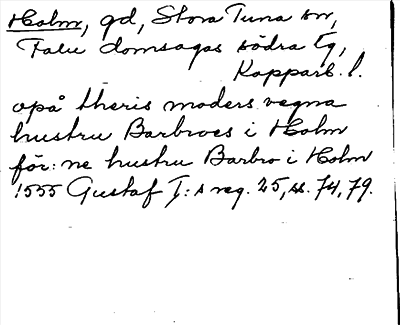 Holm, gd, Stora Tuna sn,
Falu domsagas södra tg,
Kopparb. l.
opå theris moders vegna
hustru Barbroes i Holm
för: ne hustru Barbro i Holm
1555 Gustaf I:s reg. 25, ss. 74, 79.